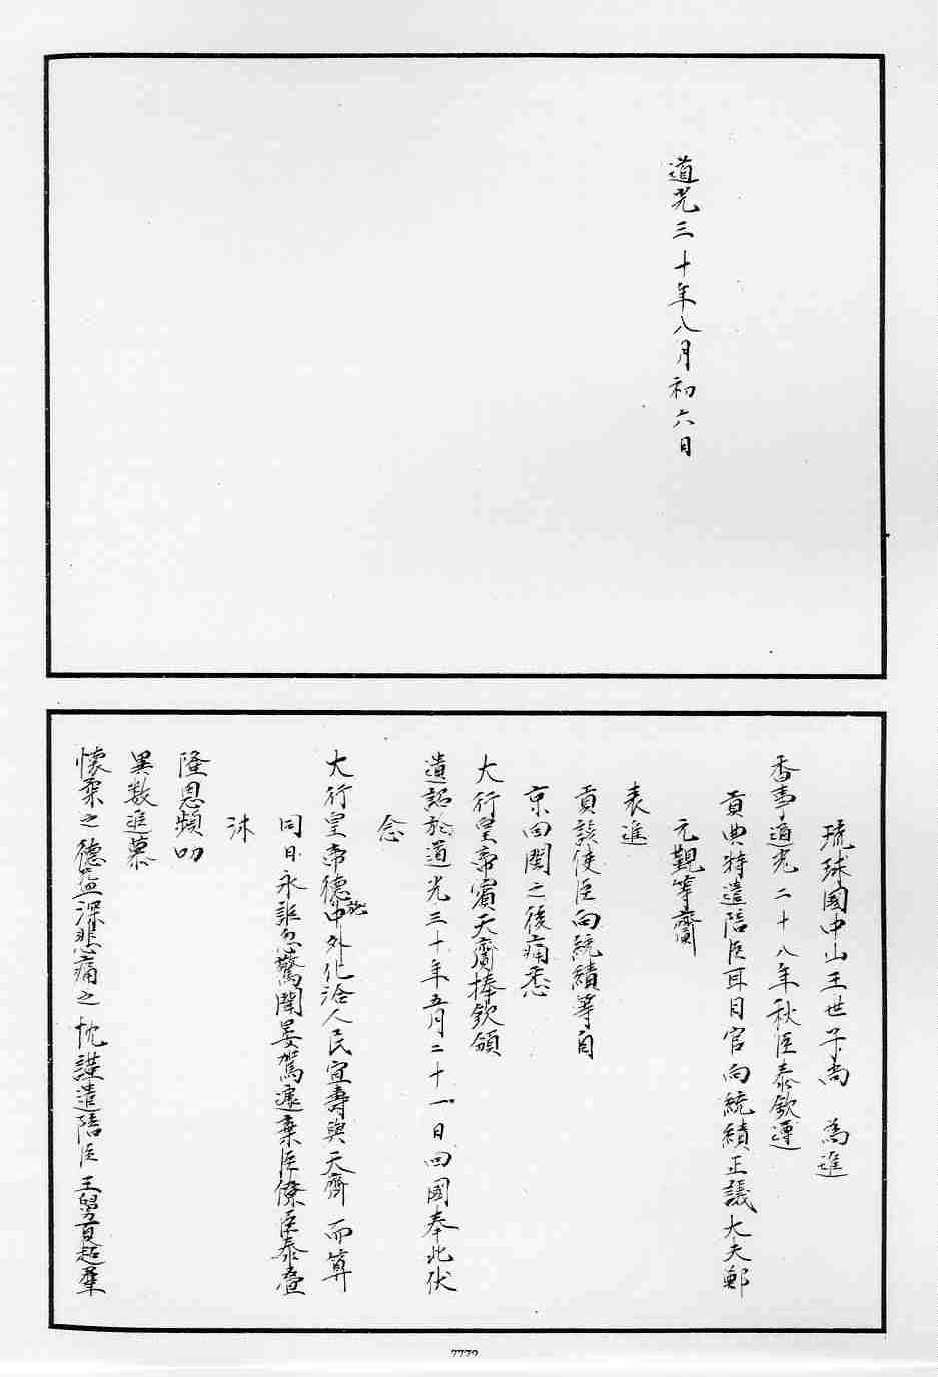 道光三十年八月初六日
琉球國中山王世子尚 為進
香事道光二十八年秋臣泰欽遵
貢典特遣陪臣耳目官向統績正議大夫鄭
元覲等齎
表進
貢該使臣向統績等自
京回閩之後痛悉
大行皇帝賓天齎捧欽頒
遺詔於道光三十年五月二十一日回國奉此伏
念
大行皇帝德訖中外化洽人民宜壽與天齊而算
同日永詎忽驚聞晏駕遽棄臣僚臣泰疊
沐
隆恩頻叨
異數進慕
懷柔之德益深悲痛之忱謹遣陪臣